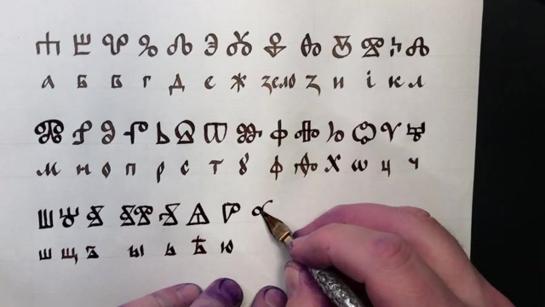 ⰰ ⰱ ⰲ ⰳ ⰴ ⰵ ⰶ ⰷ ⰸ ⰻ ⰹ ⰽ ⰾ
а б в г д е ж зело з и і к л
ⰿ ⱀ ⱁ ⱂ ⱃ ⱄ ⱅ ⱆ ⱇ ⱚ ⱈ ⱉ ⱌ ⱍ
м н о п р с т ꙋ ф ѳ х ѡ ц ч
ⱎ ⱋ ⱏ ⱏⰹ ⱐ ⱑ ⱓ
ш щ ъ ы ь ѣ ю